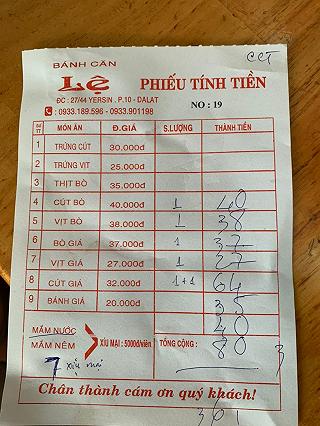 CCT
BÁNH CĂN
Lệ
PHIẾU TÍNH TIỀN
ĐC : 27/44 YERSIN . P.10 - DALAT
: 0933.189.596 - 0933.901198
NO : 19
SỐ TT MÓN ĂN Đ.GIÁ S.LƯỢNG THÀNH TIỀN
1 TRỨNG CÚT 30.000đ
2 TRỨNG VỊT 25.000đ
3 THỊT BÒ 35.000đ
4 CÚT BÒ 40.000đ 1 40
5 VỊT BÒ 38.000đ 1 38
6 BÒ GIÁ 37.000đ 1 37
7 VỊT GIÁ 27.000đ 1 27
8 CÚT GIÁ 32.000đ 1+1 64
9 BÁNH GIÁ 20.000đ 35
40
MẮM NƯỚC
MẮM NÊM
XÍU MẠI : 5000đ/viên
TỔNG CỘNG : 80
7 xíu mại
3
Chân thành cám ơn quý khách!
361